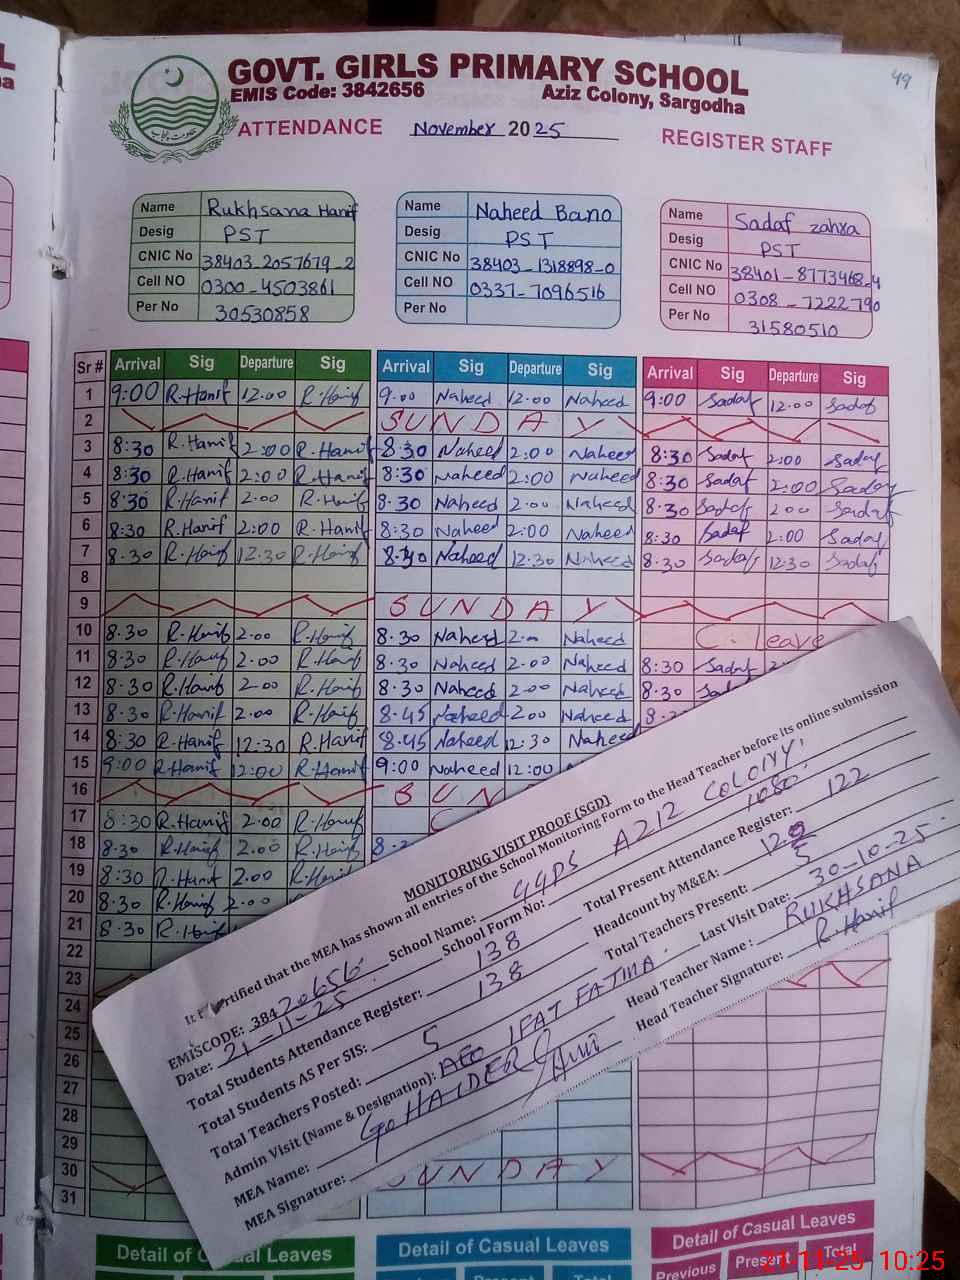 49
GOVT. GIRLS PRIMARY SCHOOL
EMIS Code: 3842656 Aziz Colony, Sargodha
ATTENDANCE November 2025 REGISTER STAFF
حکومت پنجاب
Name Rukhsana Hanif
Desig PST
CNIC No 38403-2057679-2
Cell NO 0300-4503861
Per No 30530858
Name Naheed Bano
Desig PST
CNIC No 38403-1318898-0
Cell NO 0337-7096516
Per No
Name Sadaf zahra
Desig PST
CNIC No 38401-8773468-4
Cell NO 0308-7222790
Per No 31580510
Sr # Arrival Sig Departure Sig Arrival Sig Departure Sig Arrival Sig Departure Sig
1 9:00 R.Hanif 12.00 R.Hanif 9.00 Naheed 12.00 Naheed 9:00 Sadaf 12.00 Sadaf
2 SUNDAY
3 8:30 R.Hanif 2:00 R.Hanif 8:30 Naheed 2:00 Naheed 8:30 Sadaf 2:00 Sadaf
4 8:30 R.Hanif 2:00 R.Hanif 8:30 Naheed 2:00 Naheed 8:30 Sadaf 2:00 Sadaf
5 8:30 R.Hanif 2.00 R.Hanif 8.30 Naheed 2.00 Naheed 8.30 Sadaf 2.00 Sadaf
6 8:30 R.Hanif 2:00 R.Hanif 8:30 Naheed 2:00 Naheed 8:30 Sadaf 2:00 Sadaf
7 8.30 R.Hanif 12:30 R.Hanif 8.30 Naheed 12.30 Naheed 8.30 Sadaf 12:30 Sadaf
8
9 SUNDAY
10 8.30 R.Hanif 2.00 R.Hanif 8.30 Naheed 2.00 Naheed C. leave
11 8.30 R.Hanif 2.00 R.Hanif 8.30 Naheed 2.00 Naheed 8:30 Sadaf
12 8.30 R.Hanif 2.00 R.Hanif 8.30 Naheed 2.00 Naheed 8.30
13 8.30 R.Hanif 2.00 R.Hanif 8.45 Naheed 2.00 Naheed
14 8:30 R.Hanif 12:30 R.Hanif 8.45 Naheed 12.30 Naheed
15 9:00 R.Hanif 12:00 R.Hanif 9:00 Naheed 12:00
16 SUN
17 8:30 R.Hanif 2.00 R.Hanif
18 8.30 R.Hanif 2.00 R.Hanif
19 8:30 R.Hanif 2.00 R.Hanif
20 8:30 R.Hanif 2.00
21 8.30 R.Hanif
22
23
24
25
26
27
28
29
30 SUNDAY
31
MONITORING VISIT PROOF (SGD)
It is certified that the MEA has shown all entries of the School Monitoring Form to the Head Teacher before its online submission
EMISCODE: 38420656 School Name: GGPS AZIZ COLONY
Date: 21-11-25 School Form No: 1080
Total Students Attendance Register: 138 Total Present Attendance Register: 122
Total Students AS Per SIS: 138 Headcount by M&EA:
Total Teachers Posted: 5 Total Teachers Present: 5
Admin Visit (Name & Designation): AEO IFAT FATIMA Last Visit Date: 30-10-25
MEA Name: HAIDER Head Teacher Name: RUKHSANA
MEA Signature: Head Teacher Signature: R.Hanif
Detail of Casual Leaves Detail of Casual Leaves Detail of Casual Leaves
Previous Present Total
21-11-25 10:25